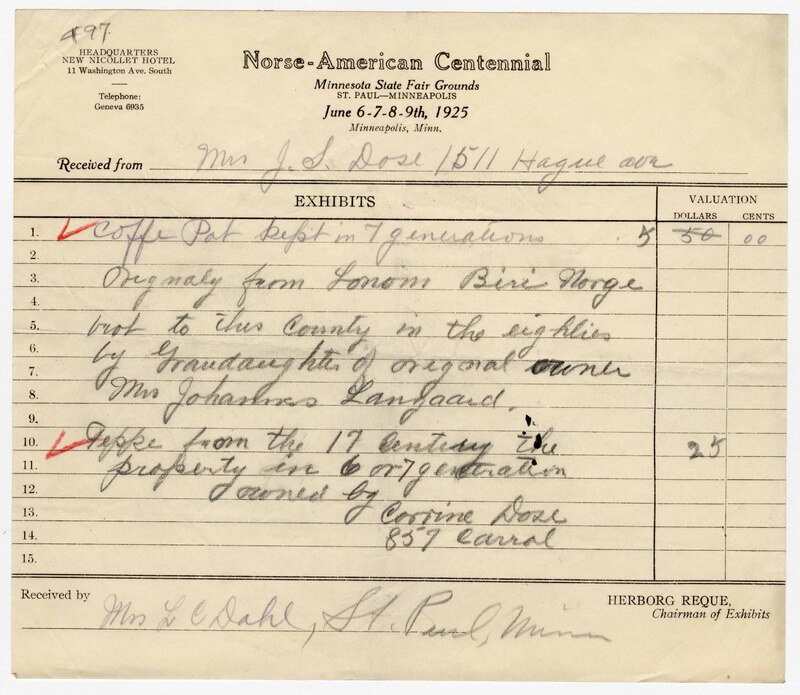 497
HEADQUARTERS
NEW NICOLLET HOTEL
11 Washington Ave. South
Telephone:
Geneva 6935
Norse-American Centennial
Minnesota State Fair Grounds
ST. PAUL—MINNEAPOLIS
June 6-7-8-9th, 1925
Minneapolis, Minn.
Received from Mrs J. S. Dose 1511 Hague ave
EXHIBITS VALUATION
DOLLARS CENTS
1. Coffe Pot kept in 7 generations 5 50 00
2.
3. Orignaly from Biri Norge
4.
5. brot to this County in the eighties
6. by Grandaughter of orignal owner
7.
8. Mrs Johannes Langaard.
9.
10. Teppe from the 17 Century the 25
11. property in 6 or 7 generation
12. owned by
13. Corrine Dose
14. 857 Carrol
15.
Received by Mrs L C Dahl, St. Paul, Minn
HERBORG REQUE,
Chairman of Exhibits